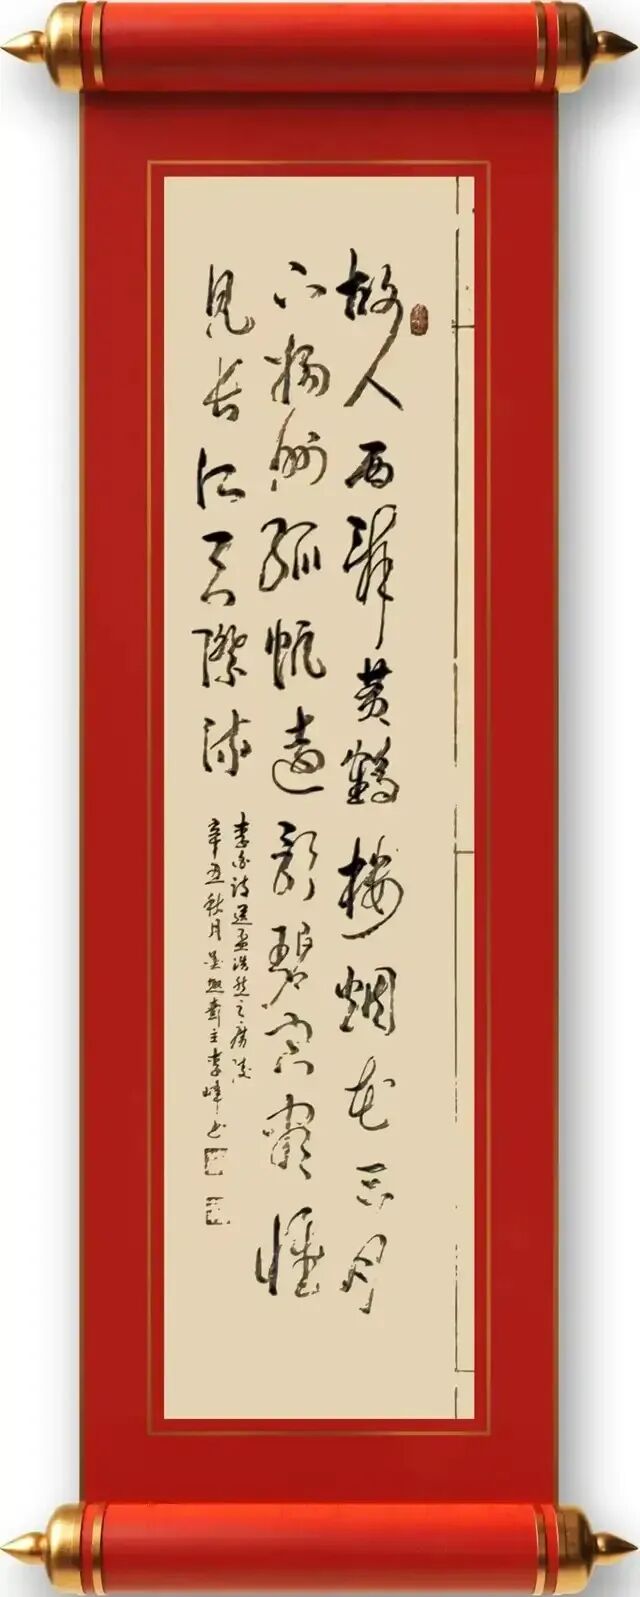 故人西辭黄鶴樓烟花三月
下揚州孤帆遠影碧空盡惟
見長江天際流
李白詩送孟浩然之廣陵
辛丑秋月齋主李峰書